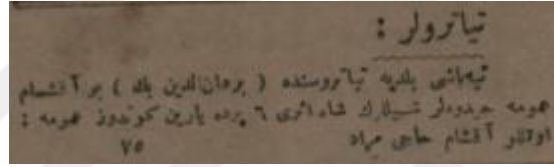 تياترولر :
تپه‌باشى بلديه تياتروسنده ( برهان‌الدين بك ) بر آقشام
عومه حيدودلر شيللرك شاه‌اثرى ٦ پرده يارين كوندوز عومه :
اوتللو آقشام حاجى مراد ٧٥